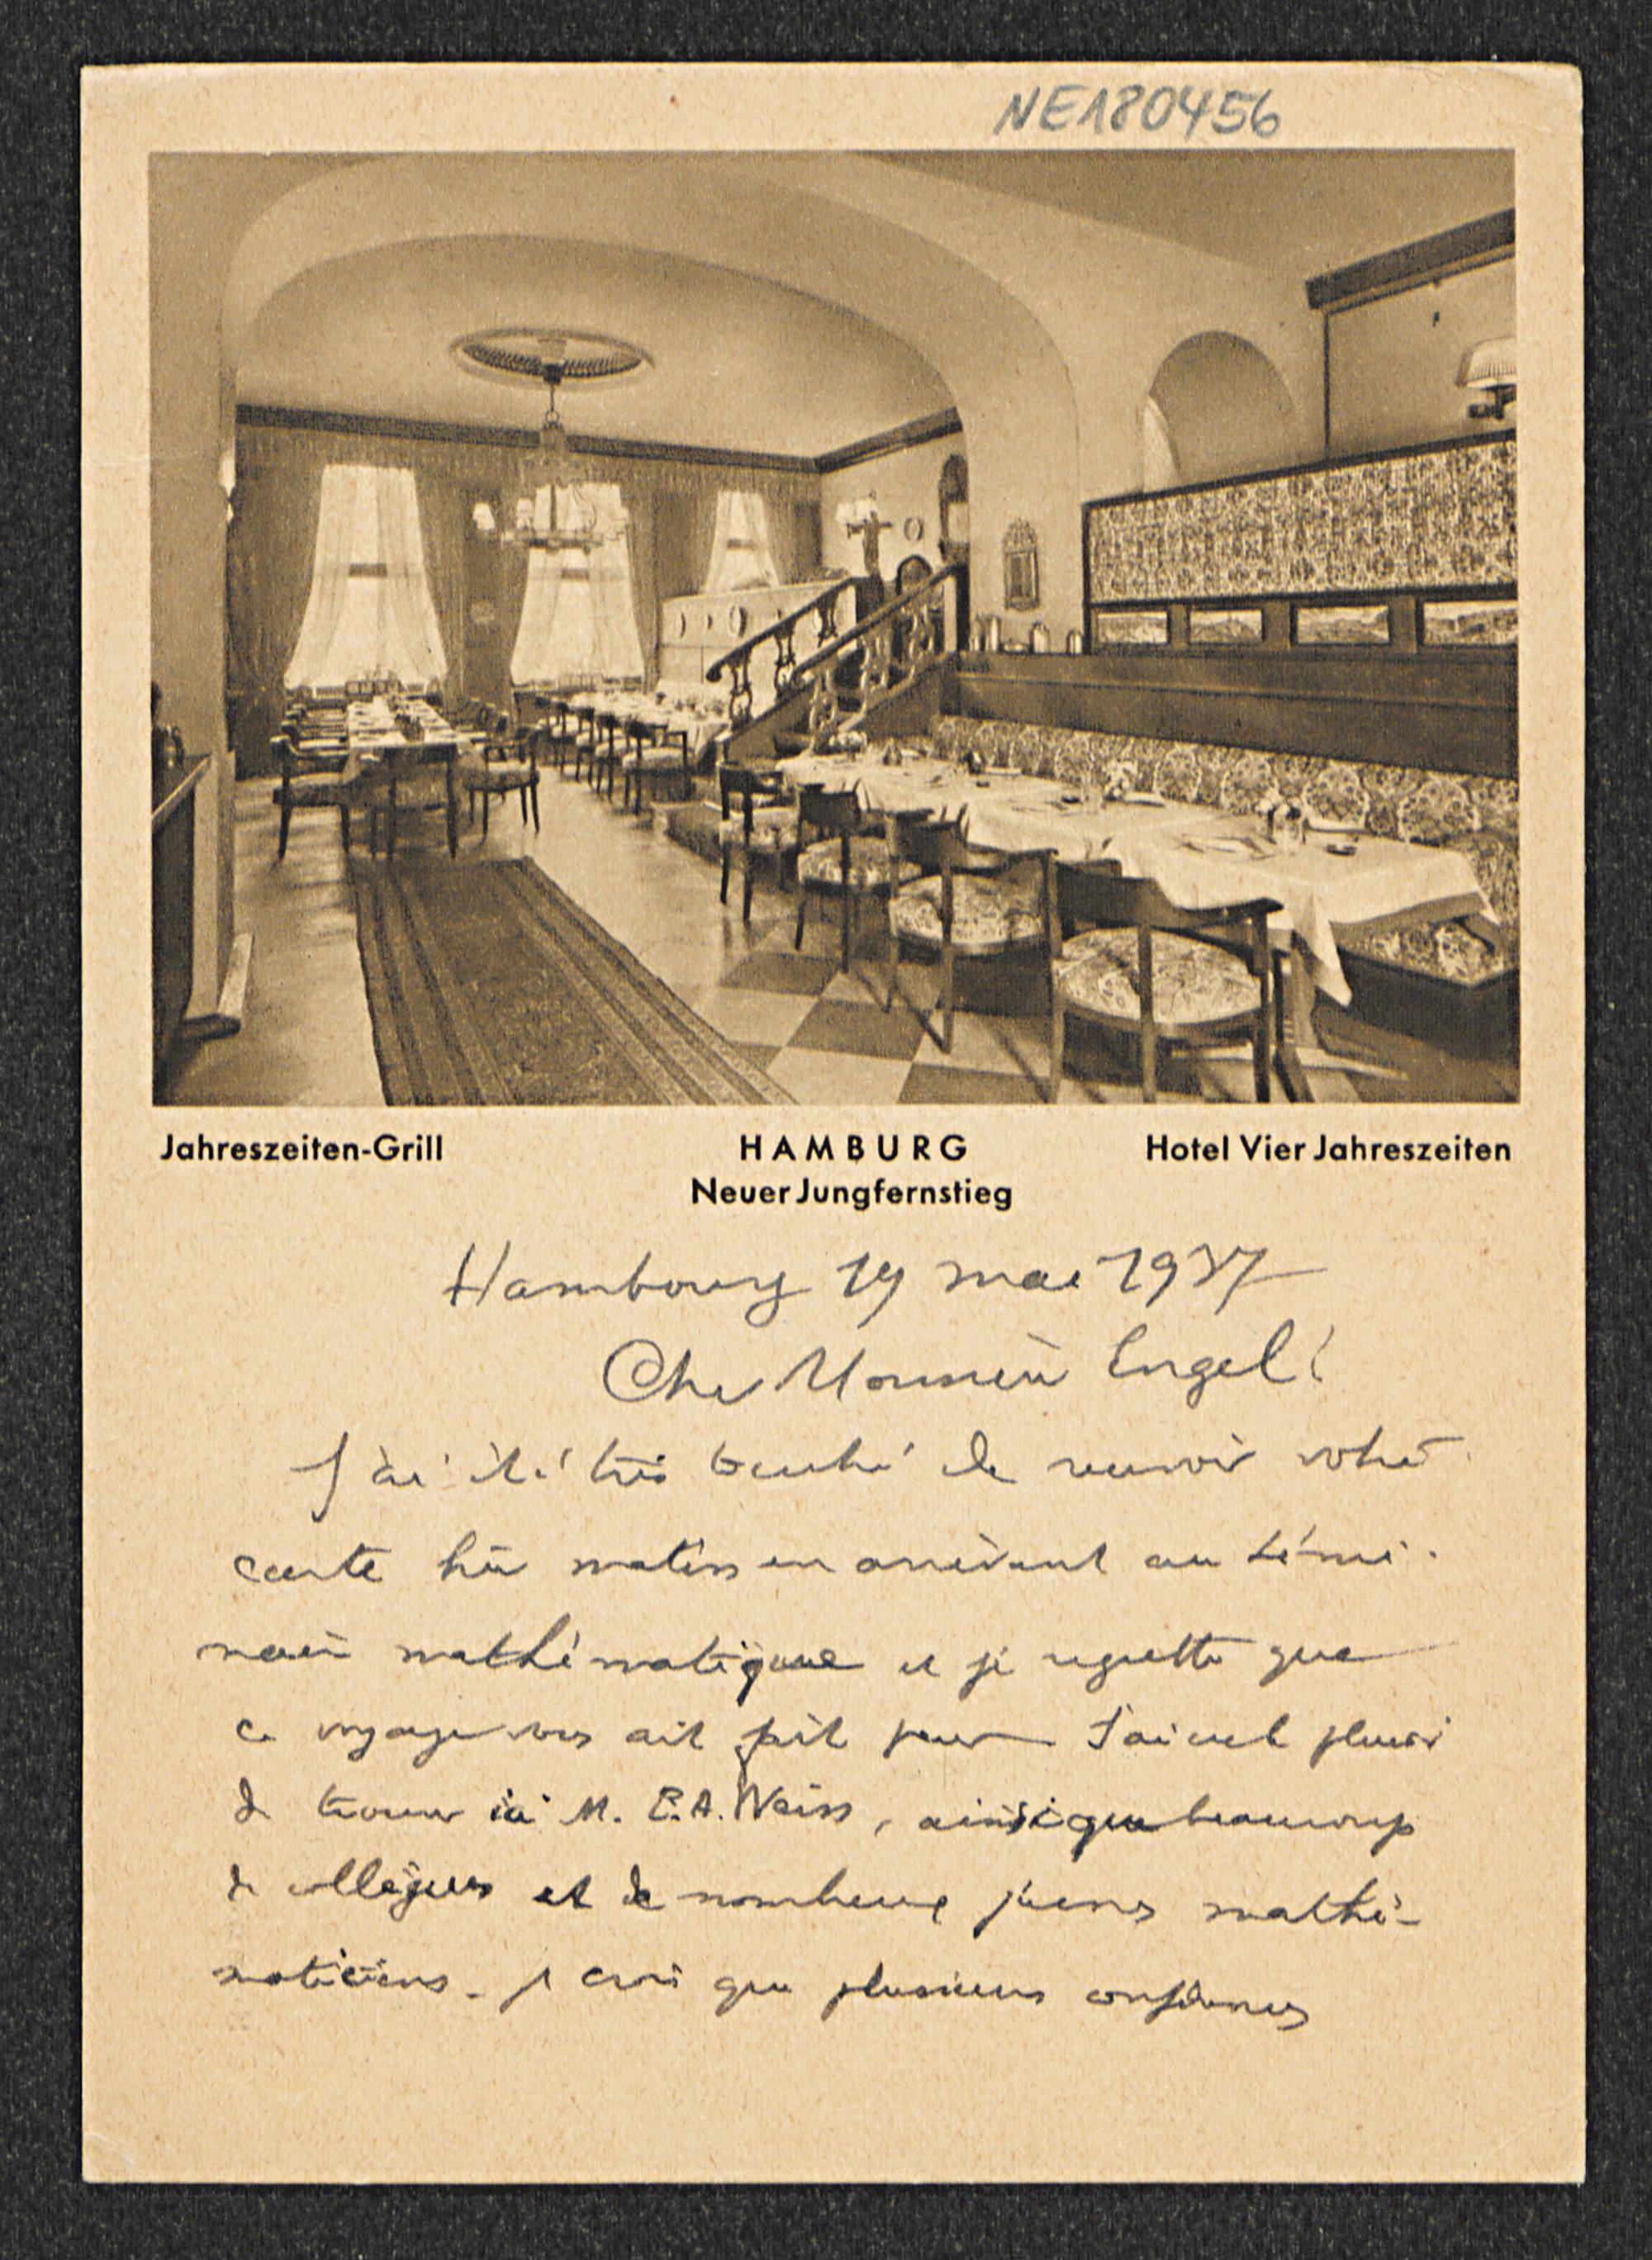 NE180456
Jahreszeiten-Grill HAMBURG Hotel Vier Jahreszeiten
Neuer Jungfernstieg
Hambourg 19 mai 1937
Cher Monsieur Engel!
J'ai été très touché de recevoir votre
carte hier matin en arrivant au sémi-
naire mathématique et je regrette que
ce voyage vous ait fait peur J'ai eu le plaisir
de trouver ici M. E.A. Weiss, ainsi que beaucoup
de collègues et de nombreux jeunes mathé-
maticiens. je crois que plusieurs conférences